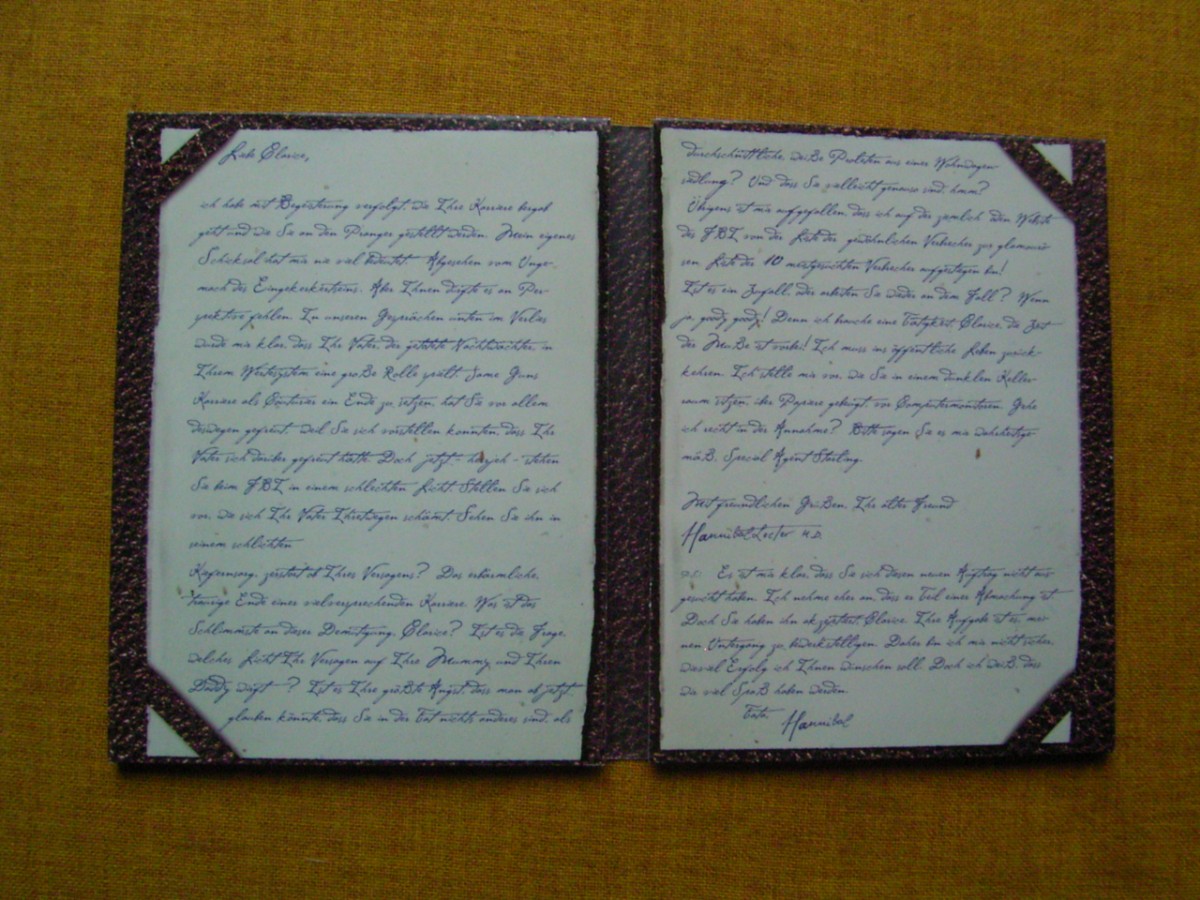 Liebe Clarice,
ich habe mit Begeisterung verfolgt, wie Ihre Karriere bergab
geht und wie Sie an den Pranger gestellt werden. Mein eigenes
Schicksal hat mir nie viel bedeutet. Abgesehen vom Unge-
mach des Eingekerkertseins. Aber Ihnen dürfte es an Per-
spektive fehlen. In unseren Gesprächen unten im Verlies
wurde mir klar, dass Ihr Vater, der getötete Nachtwächter, in
Ihrem Wertesystem eine große Rolle spielt. Jame Gums
Karriere als Couturier ein Ende zu setzen, hat Sie vor allem
deswegen gefreut, weil Sie sich vorstellen konnten, dass Ihr
Vater sich darüber gefreut hätte. Doch jetzt - herrjeh - stehen
Sie beim FBI in einem schlechten Licht. Stellen Sie sich
vor, wie sich Ihr Vater Ihretwegen schämt. Sehen Sie ihn in
seinem schlichten
Kiefernsarg, zerstört ob Ihres Versagens? Das erbärmliche,
traurige Ende einer vielversprechenden Karriere. Was ist das
Schlimmste an dieser Demütigung, Clarice? Ist es die Frage,
welches Licht Ihr Versagen auf Ihre Mummy und Ihren
Daddy wirft ? Ist es Ihre größte Angst, dass man ab jetzt
glauben könnte, dass Sie in der Tat nichts anderes sind, als
durchschnittliche, weiße Proleten aus einer Wohnwagen
siedlung? Und dass Sie vielleicht genauso sind, hmm?
Übrigens ist mir aufgefallen, dass ich auf der ziemlich öden Website
des FBI von der Liste der gewöhnlichen Verbrecher zur glamourö-
sen Liste der 10 meistgesuchten Verbrecher aufgestiegen bin!
Ist es ein Zufall, oder arbeiten Sie wieder an dem Fall? Wenn
ja, goody goody! Denn ich brauche eine Tätigkeit, Clarice, die Zeit
der Muße ist vorbei! Ich muss ins öffentliche Leben zurück-
kehren. Ich stelle mir vor, wie Sie in einem dunklen Keller
raum sitzen, über Papiere gebeugt, vor Computermonitoren. Gehe
ich recht in der Annahme? Bitte sagen Sie es mir wahrheitsge-
mäß, Special Agent Starling.
Mit freundlichen Grüßen, Ihr alter Freund
Hannibal Lecter M.D.
Es ist mir klar, dass Sie sich diesen neuen Auftrag nicht aus-
gesucht haben. Ich nehme eher an, dass er Teil einer Abmachung ist.
Doch Sie haben ihn akzeptiert, Clarice. Ihre Aufgabe ist es, mei-
nen Untergang zu bewerkstelligen. Daher bin ich mir nicht sicher,
wieviel Erfolg ich Ihnen wünschen soll. Doch ich weiß, dass
wir viel Spaß haben werden.
Tata, Hannibal